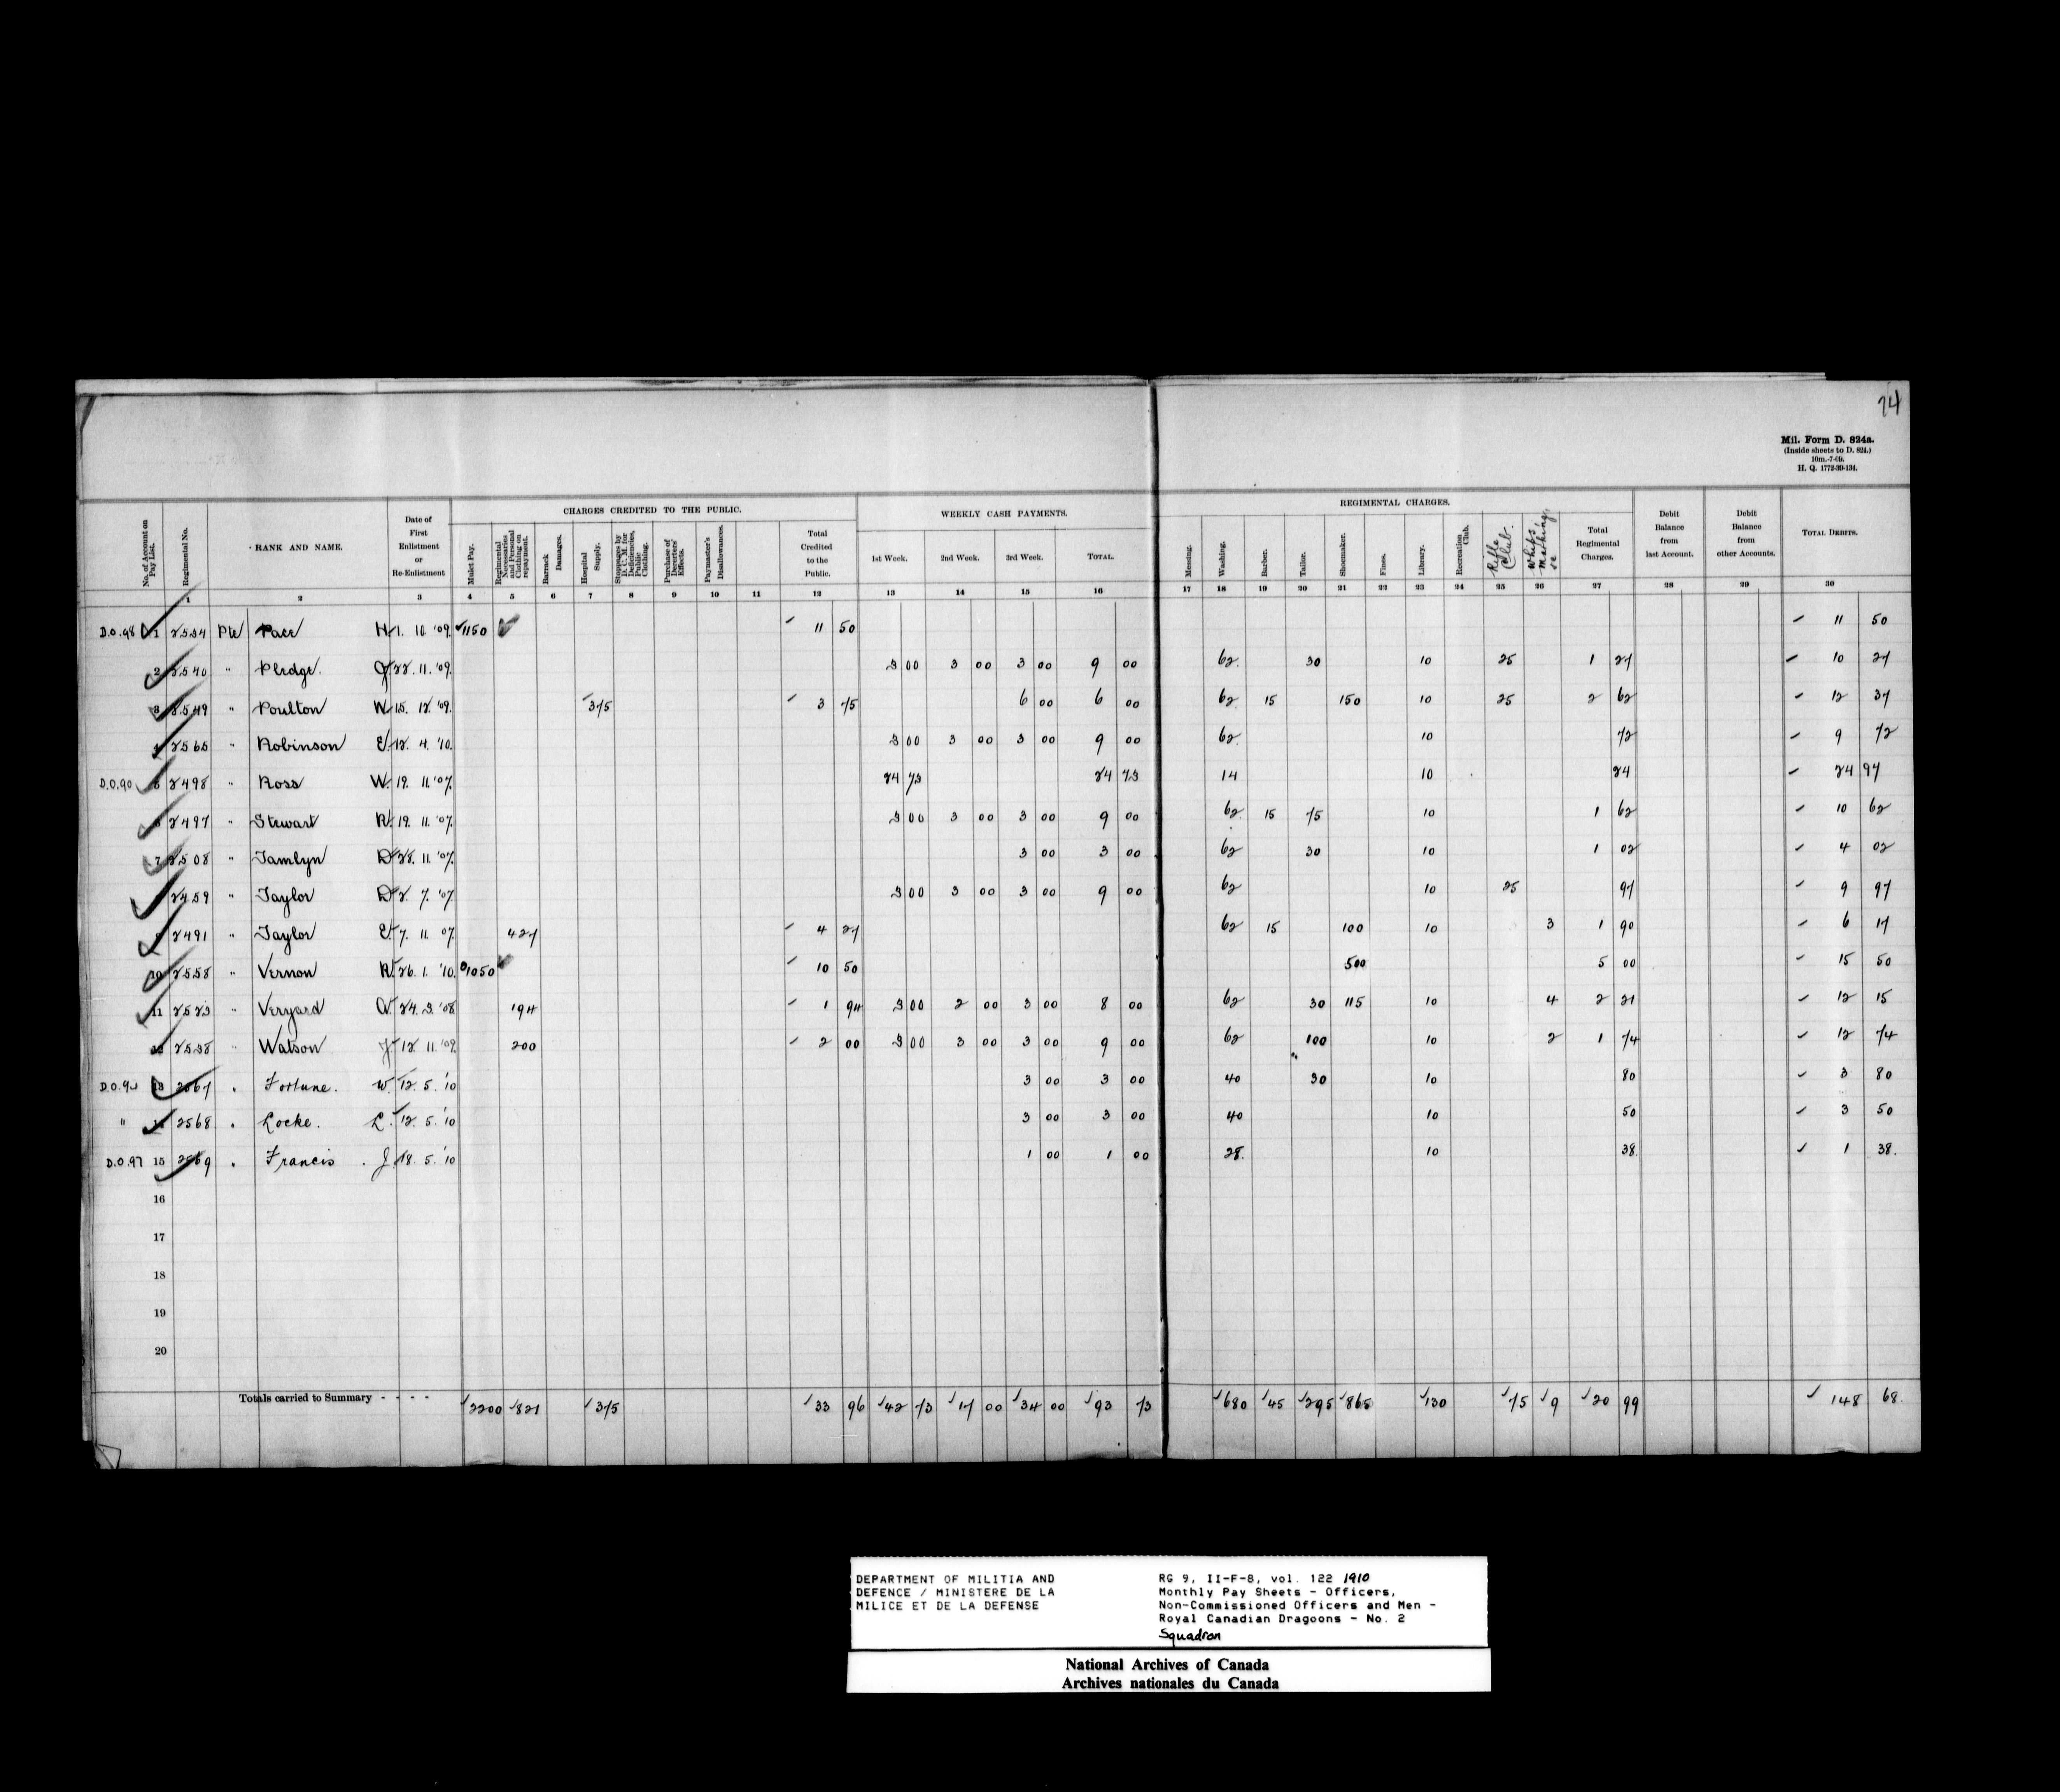 74
Mil. Form D. 824a.
(Inside sheets to D. 824.)
10m.-7-09.
H. Q. 1772-39-134.
CHARGES CREDITED TO THE PUBLIC. WEEKLY CASH PAYMENTS. REGIMENTAL CHARGES.
No. of Account on Pay List. Regimental No. RANK AND NAME. Date of First Enlistment or Re-Enlistment Mulct Pay. Regimental Necessaries and Personal Clothing on repayment. Barrack Damages. Hospital Supply. Stoppages by D. C. M. for Deficiencies, Public Clothing. Purchase of Deserters' Effects. Paymaster's Disallowances. Total Credited to the Public. 1st Week. 2nd Week. 3rd Week. TOTAL. Messing. Washing. Barber. Tailor. Shoemaker. Fines. Library. Recreation Club. Rifle Club. Total Regimental Charges. Debit Balance from last Account. Debit Balance from other Accounts. TOTAL DEBITS.
1 2 3 4 5 6 7 8 9 10 11 12 13 14 15 16 17 18 19 20 21 22 23 24 25 26 27 28 29 30
D.O. 98 1 2534 Pte Pace H. 1. 10. '09. 1150 11 50 11 50
2 2540 " Pledge. J. 22. 11. '09. 3 00 3 00 3 00 9 00 62 30 10 25 1 27 10 27
3 2549 " Poulton W. 15. 12. '09. 375 3 75 6 00 6 00 62 15 150 10 25 2 62 12 37
4 2565 " Robinson E. 12. 4. '10. 3 00 3 00 3 00 9 00 62 10 72 9 72
D.O. 90 5 2498 " Ross W. 19. 11. '07. 24 73 24 73 14 10 24 24 97
6 2497 " Stewart R. 19. 11. '07. 3 00 3 00 3 00 9 00 62 15 75 10 1 62 10 62
7 2508 " Tamlyn D. 28. 11. '07. 3 00 3 00 62 30 10 1 02 4 02
2459 " Taylor D. 2. 7. '07. 3 00 3 00 3 00 9 00 62 10 25 97 9 97
9 2491 " Taylor E. 7. 11 07. 427 4 27 62 15 100 10 3 1 90 6 17
10 2558 " Vernon R. 26. 1. '10. 1050 10 50 500 5 00 15 50
11 2523 " Veryard A. 24. 3. '08. 194 1 94 3 00 2 00 3 00 8 00 62 30 115 10 4 2 21 12 15
12 2538 " Watson J. 12 11. '09. 200 2 00 3 00 3 00 3 00 9 00 62 100 10 2 1 74 12 74
13 2567 " Fortune. W. 12. 5. '10 3 00 3 00 40 30 10 80 3 80
" 14 2568 " Locke. L. 12. 5. '10 3 00 3 00 40 10 50 3 50
D.O. 97 15 2569 " Francis. J. 18. 5. '10 1 00 1 00 28. 10 38. 1 38.
16
17
18
19
20
Totals carried to Summary - - - - 2200 821 375 33 96 42 73 17 00 34 00 93 73 680 45 295 865 130 75 9 20 99 148 68.
DEPARTMENT OF MILITIA AND
DEFENCE / MINISTERE DE LA
MILICE ET DE LA DEFENSE
RG 9, II-F-8, vol. 122 1910
Monthly Pay Sheets - Officers,
Non-Commissioned Officers and Men -
Royal Canadian Dragoons - No. 2
Squadron
National Archives of Canada
Archives nationales du Canada